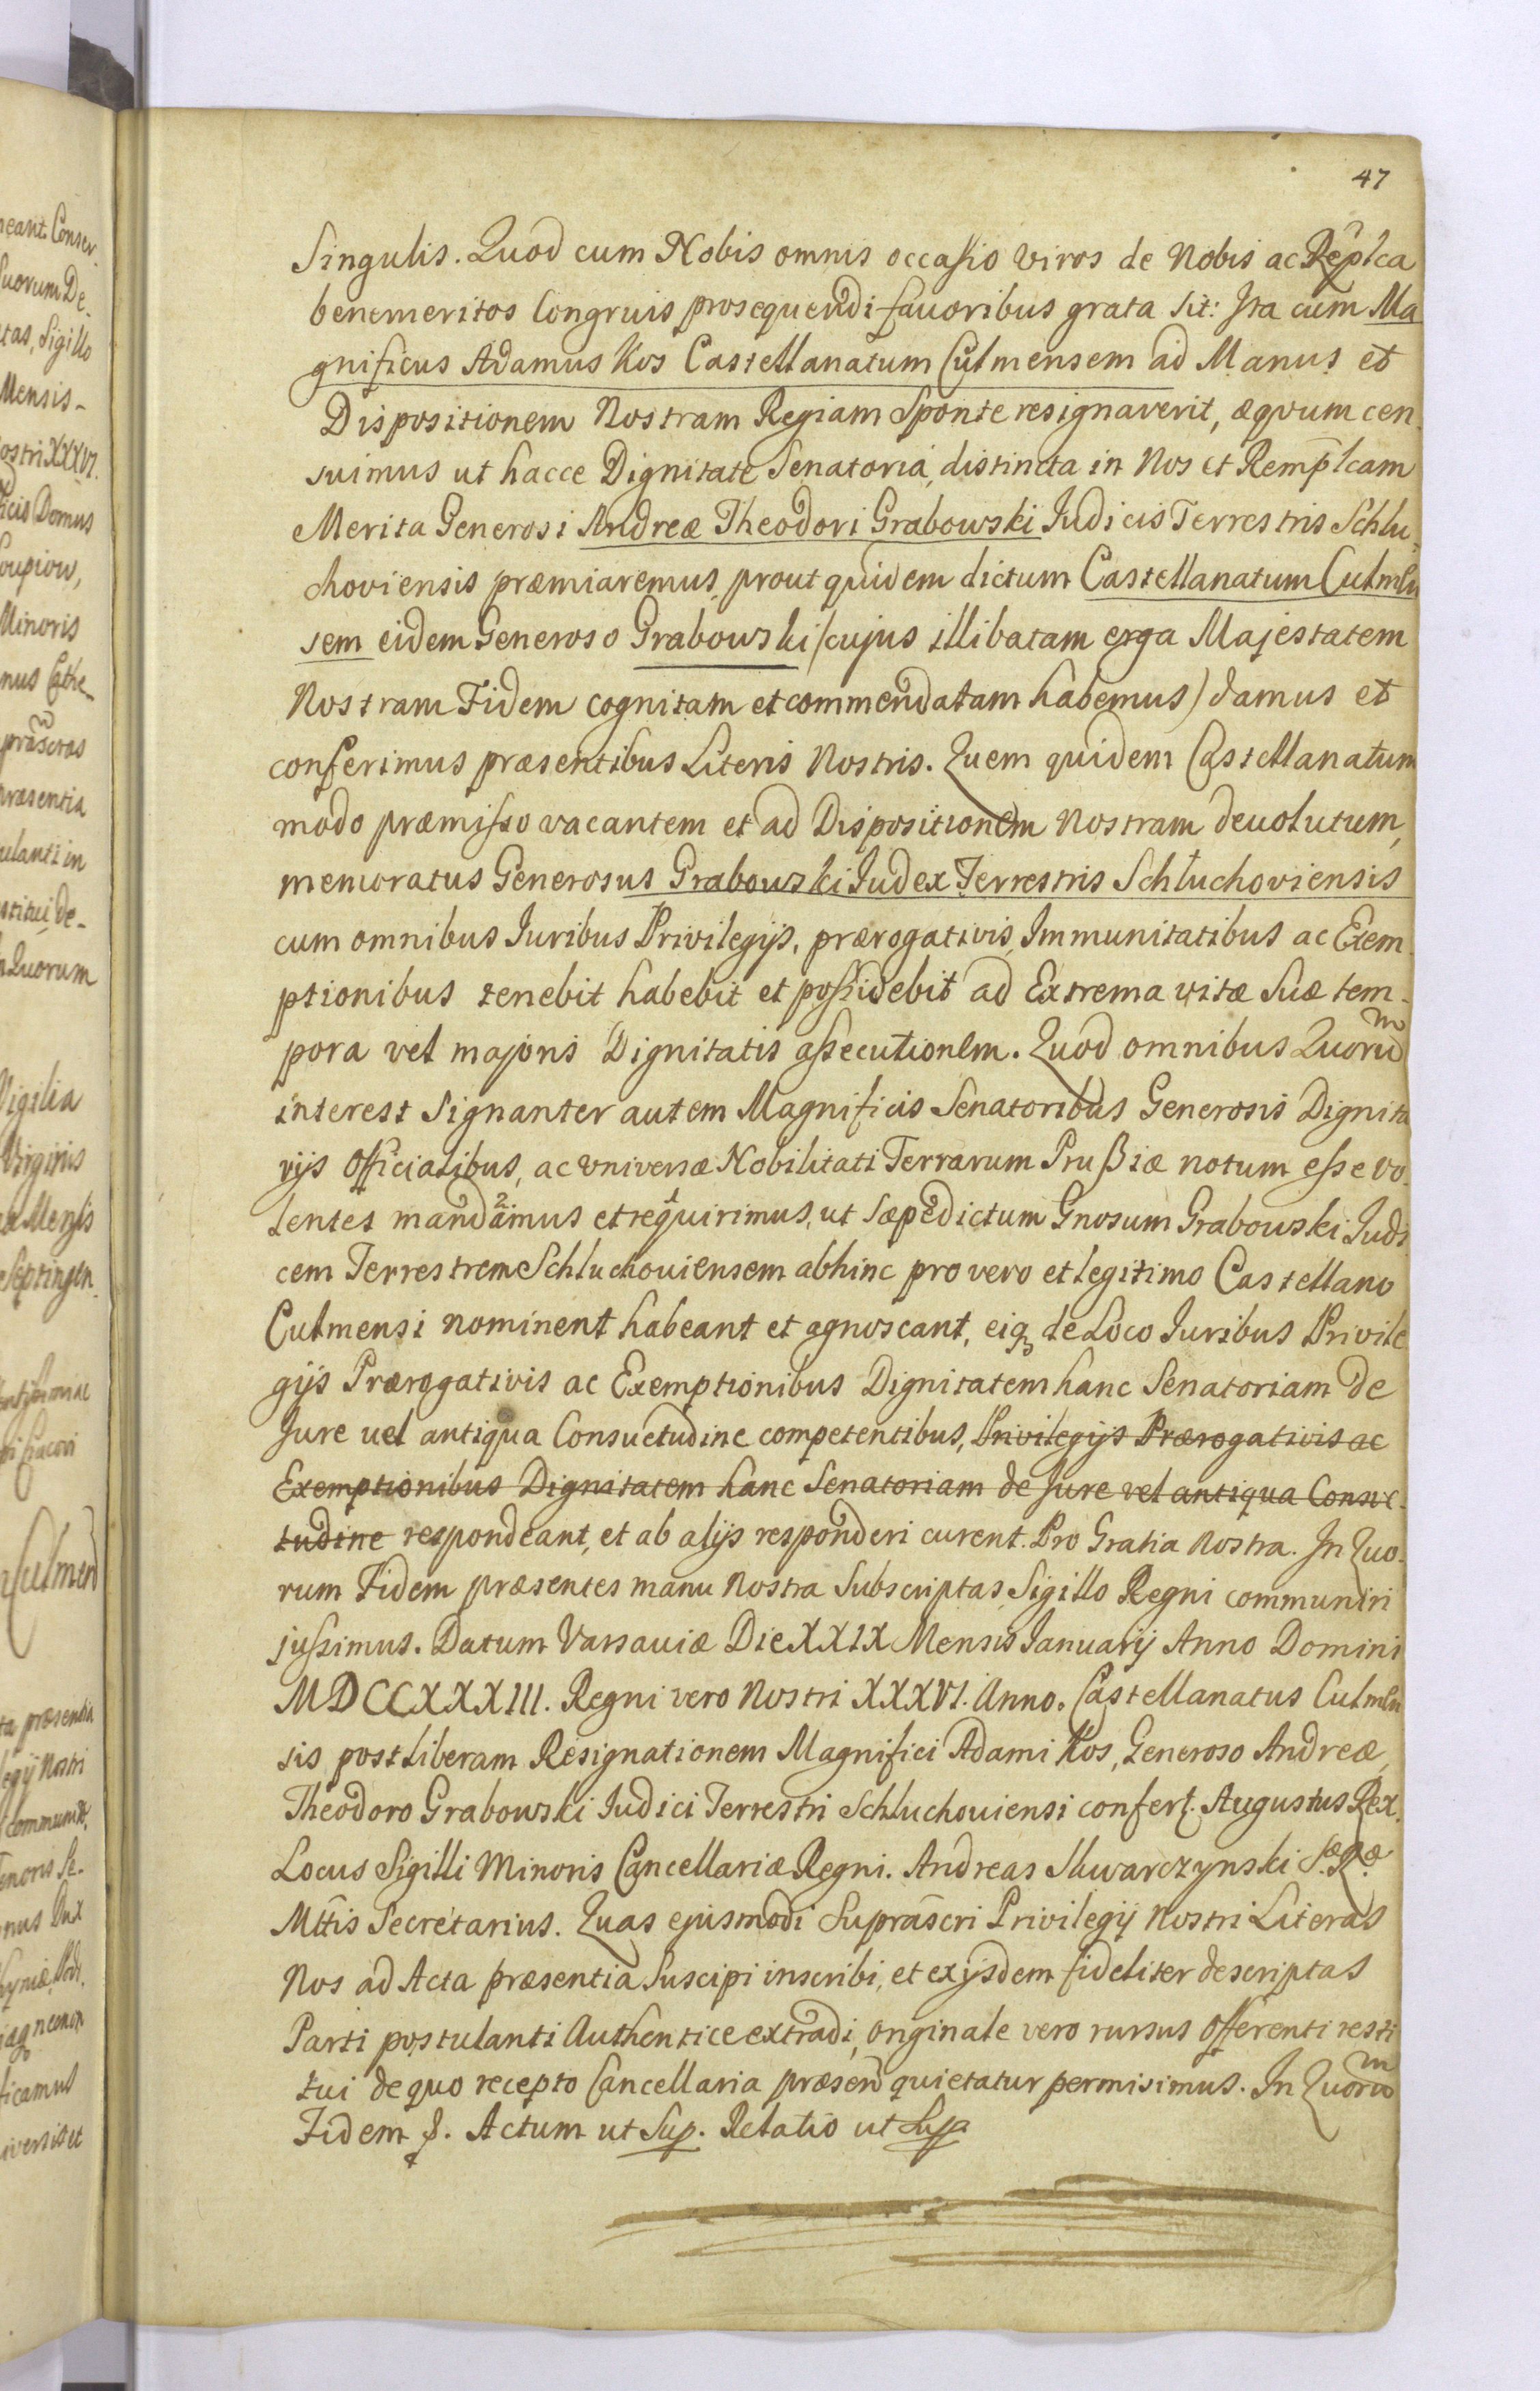 47
Singulis. Quod cum Nobis omnis occasio viros de Nobis ac Replca
benemeritos Congruis prosequendi favoribus grata sit: Ita cum Ma
gnificus Adamus Kos Castellanatum Culmensem ad Manus et
Dispositionem Nostram Regiam Sponte resignaverit, æquum cen
suimus ut hacce Dignitate Senatoria, distincta in Nos et Remplcam
Merita Generosi Andreæ Theodori Grabowski Judicis Terrestris Schlu
choviensis præmiaremus, prout quidem dictum Castellanatum Culmen
sem eidem Generoso Grabowski (cujus illibatam erga Majestatem
Nostram Fidem cognitam et commendatam habemus) damus et
conferimus præsentibus Literis Nostris. Quem quidem Castellanatum
modo præmisso vacantem et ad Dispositionem Nostram devolutum,
memoratus Generosus Grabowski Judex Terrestris Schluchoviensis
cum omnibus Juribus Privilegijs, prærogativis, Immunitatibus ac Exem
ptionibus tenebit habebit et possidebit ad Extrema vitæ Suæ tem-
pora vel majoris Dignitatis assecutionem. Quod omnibus Quorum
interest signanter autem Magnificis Senatoribus Generosis Dignita
rijs Officialibus, ac universæ Nobilitati Terrarum Prußiæ notum esse vo-
lentes mandamus et requirimus, ut sæpedictum Gnosum Grabowski Judi
cem Terrestrem Schluchoviensem abhinc pro vero et legitimo Castellano
Culmensi nominent habeant et agnoscant, eiq de Loco Juribus Privile
gijs Prærogativis ac Exemptionibus Dignitatem hanc Senatoriam de
Jure vel antiqua Consuetudine competentibus, Privilegijs Prærogativis ac
Exemptionibus Dignitatem hanc Senatoriam de Jure vel antiqua Consue-
tudine respondeant, et ab alijs responderi curent. Pro Gratia Nostra. In Quo-
rum Fidem præsentes manu Nostra Subscriptas, Sigillo Regni communiri
jussimus. Datum Varsaviæ Die XXIX Mensis Januarij Anno Domini
MDCCXXXIII. Regni vero Nostri XXXVI. Anno. Castellanatus Culmen
sis post liberam Resignationem Magnifici Adami Kos, Generoso Andreæ
Theodoro Grabowski Judici Terrestri Schluchoviensi confert. Augustus Rex.
Locus Sigilli Minoris Cancellariæ Regni. Andreas Skwarczynski S.æ R.æ
Mttis Secretarius. Quas ejusmodi Suprascri Privilegij Nostri Literas
Nos ad Acta præsentia Suscipi inscribi, et exijsdem fideliter descriptas
Parti postulanti Authentice extradi, originale vero rursus Offerenti resti
tui de quo recepto Cancellaria præsen quietatur permisimus. In Quorum
Fidem &. Actum ut Sup. Relatio ut Supa